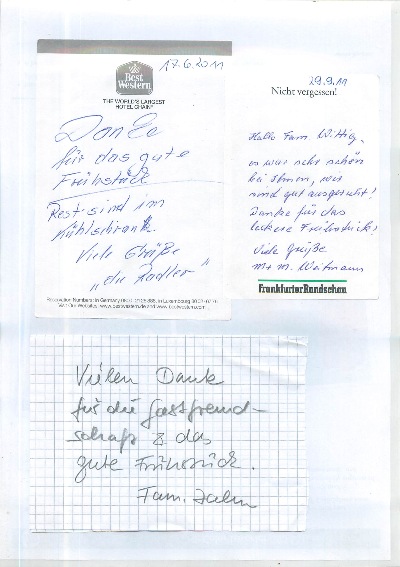 17.6.2011
Best
Western
THE WORLD'S LARGEST
HOTEL CHAIN
Danke
für das gute
Frühstück
Rest sind im
Kühlschrank.
Viele Grüße
„die Radler"
Reservation Numbers: in Germany
Visit Our Websites: www.bestwestern.de and www.bestwestern.com
29.9.11
Nicht vergessen!
Hallo Fam. Wittig,
es war sehr schön
bei Ihnen, wir
sind gut ausgeruht!
Danke für das
leckere Frühstück!
Viele Grüße
M. + M. Weitmann
Frankfurter Rundschau
Vielen Dank
für die Gastfreund-
schaft & das
gute Frühstück.
Fam.